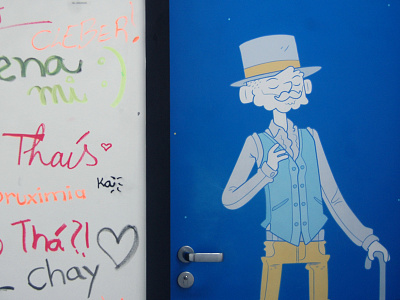 CEFER!
ena
mi :)
Thaís
Kai
Druximia
Thá?!
chay